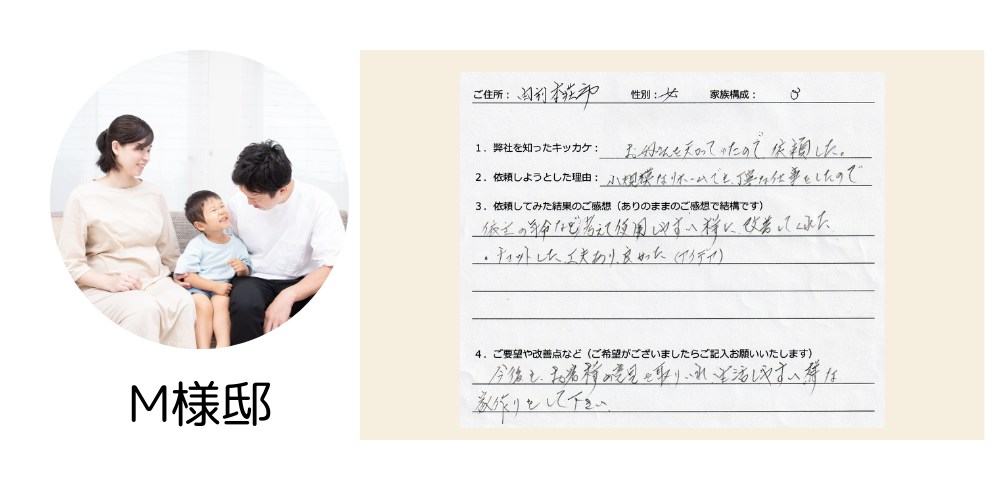 M様邸
ご住所: 由利本荘市 性別: 女 家族構成: 3
1. 弊社を知ったキッカケ: お母さんを知っていたので依頼した。
2. 依頼しようとした理由: 小規模なリホームでも、丁寧な仕事をしたので
3. 依頼してみた結果のご感想(ありのままのご感想で結構です)
依主の年令など考えて使用しやすい様に、改善してくれた
・チョットした工夫あり、良かった(アイデア)
4. ご要望や改善点など(ご希望がございましたらご記入お願いいたします)
今後も、お客様の意見を取りいれ生活しやすい様な
家作りをして下さい